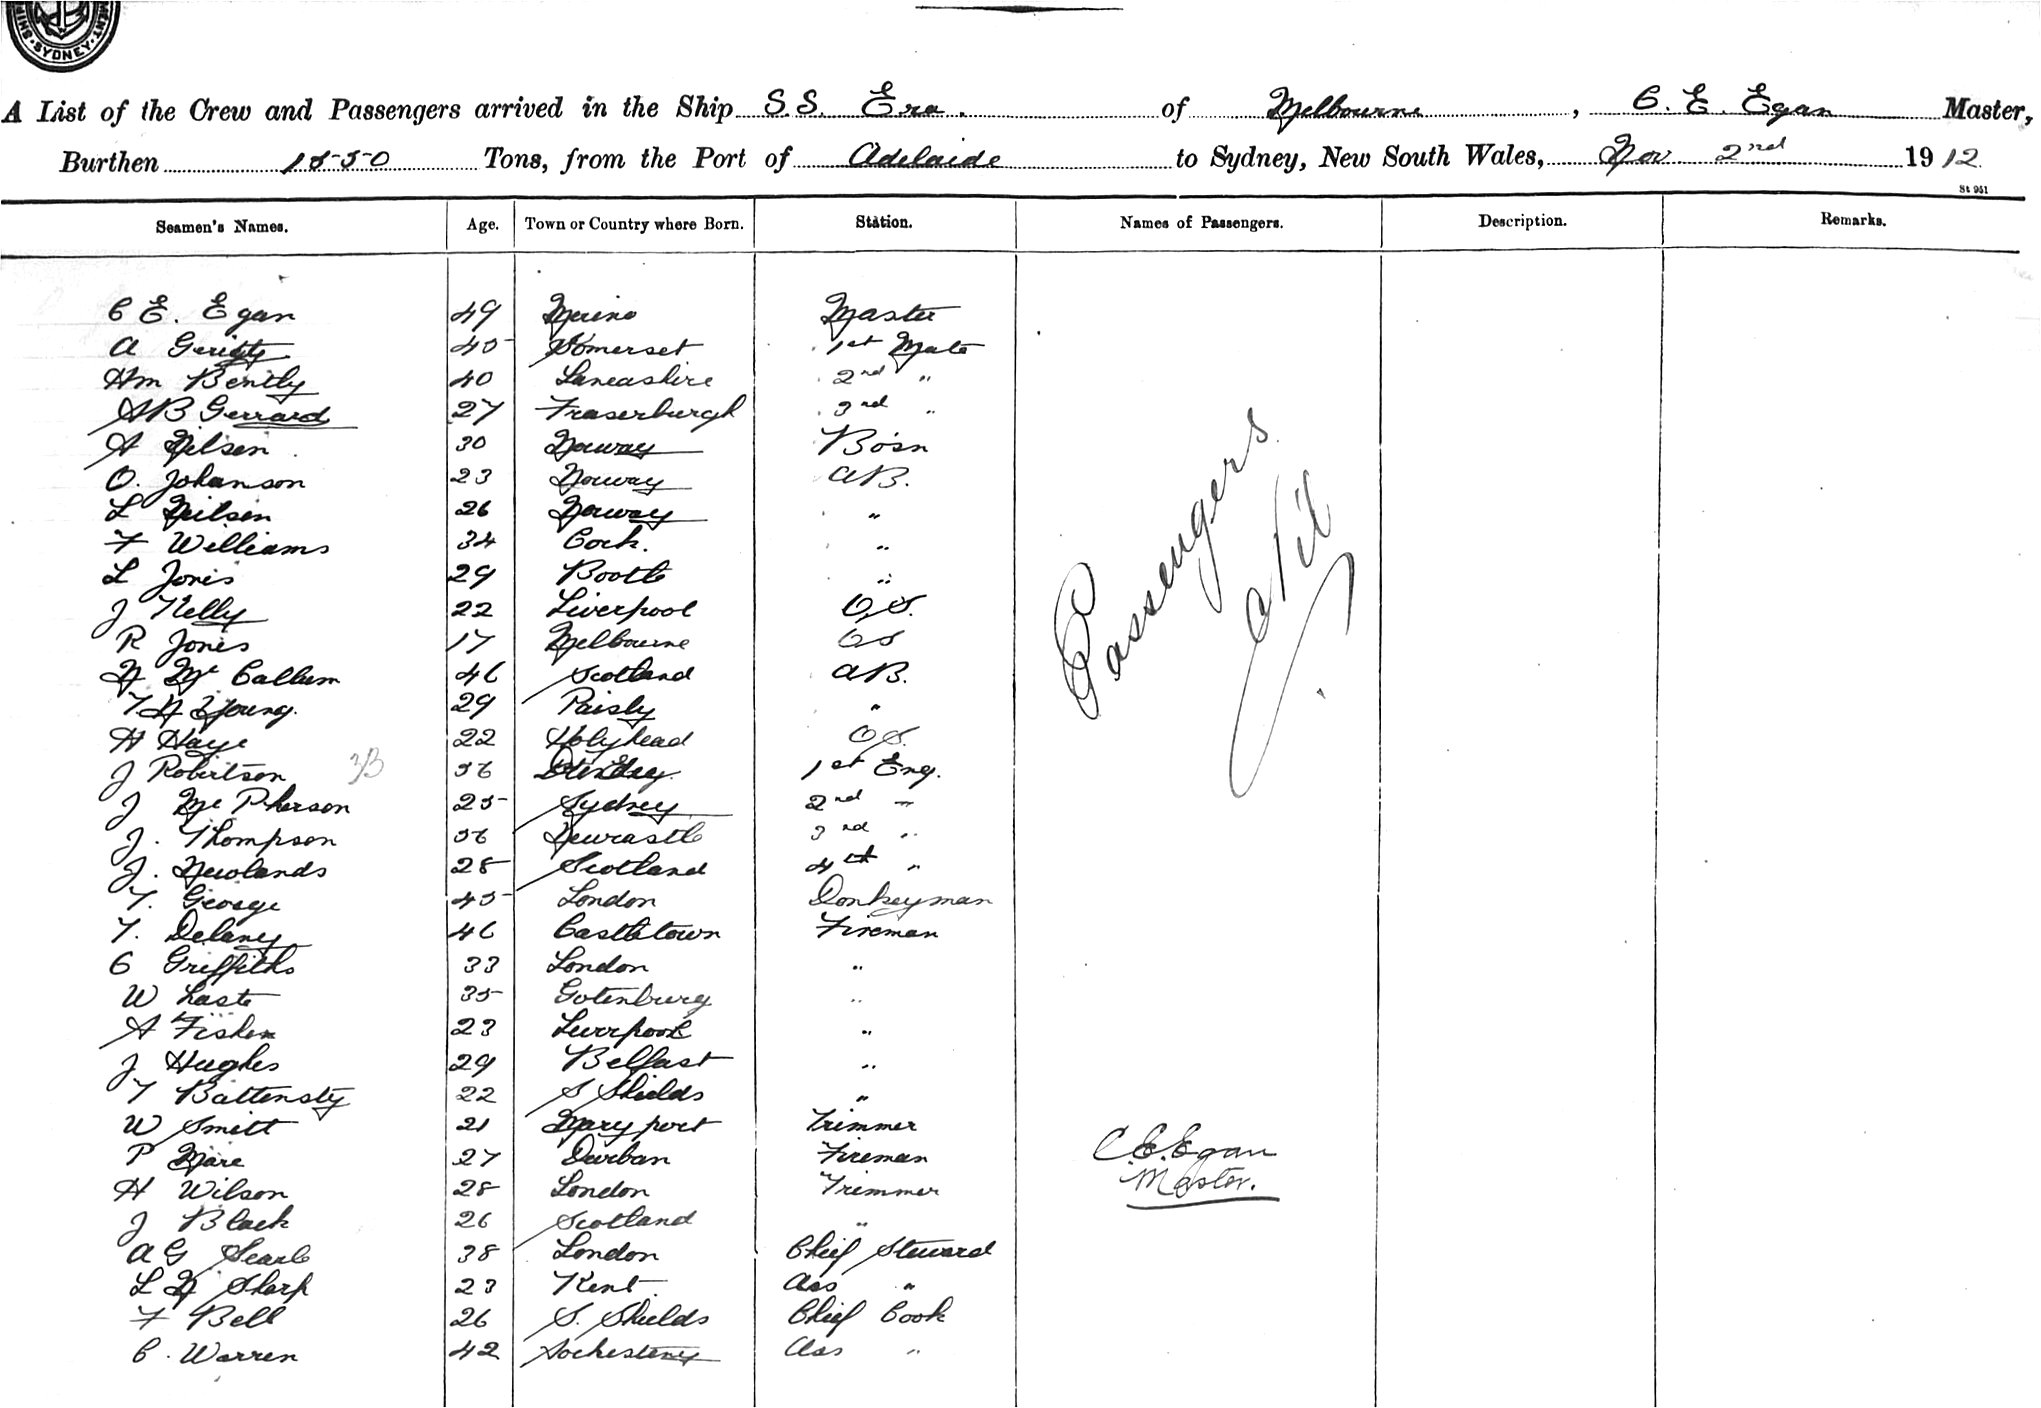 SYDNEY
A List of the Crew and Passengers arrived in the Ship S.S. Era. of Melbourne, C. E. Egan Master,
Burthen 1550 Tons, from the Port of Adelaide to Sydney, New South Wales, Nov 2nd 1912
St 951
Seamen's Names. Age. Town or Country where Born. Station. Names of Passengers. Description. Remarks.
C E. Egan 49 Merino Master
A Gerigty 45 Somerset 1st Mate
Hm Bently 40 Lancashire 2nd "
AB Gerrard 27 Fraserburgh 3rd "
A Nilsen 30 Norway Bosn
O. Johanson 23 Norway AB.
L Neilsen 26 Norway "
F Williams 34 Cork. "
L Jones 29 Bootle "
J Kelly 22 Liverpool O.S.
R Jones 17 Melbourne OS
N Mc Callum 46 Scotland AB.
T N Young. 29 Paisly "
H Haye 22 Holyhead OS.
J Robertson 3B 56 1st Eng.
J Mc Pherson 25 Sydney 2nd "
J. Thompson 36 Newcastle 3rd "
J. Newlands 28 Scotland 4th "
T. George 45 London Donkeyman
T. Delaney 46 Castletown Fireman
C Griffiths 33 London "
W Laste 35 Gotenburg "
A Fisher 23 Liverpool "
J Hughes 29 Belfast "
T Battensty 22 S Shields "
W Smitt 21 Maryport Trimmer
P Mare 27 Durban Fireman
H Wilson 28 London Trimmer
J Black 26 Scotland "
A G Searle 38 London Chief Steward
L N Sharp 23 Kent. Ass "
F Bell 26 S. Shields Chief Cook
C. Warren 42 Ass "
Passengers
Nil
C.E.Egan
Master.